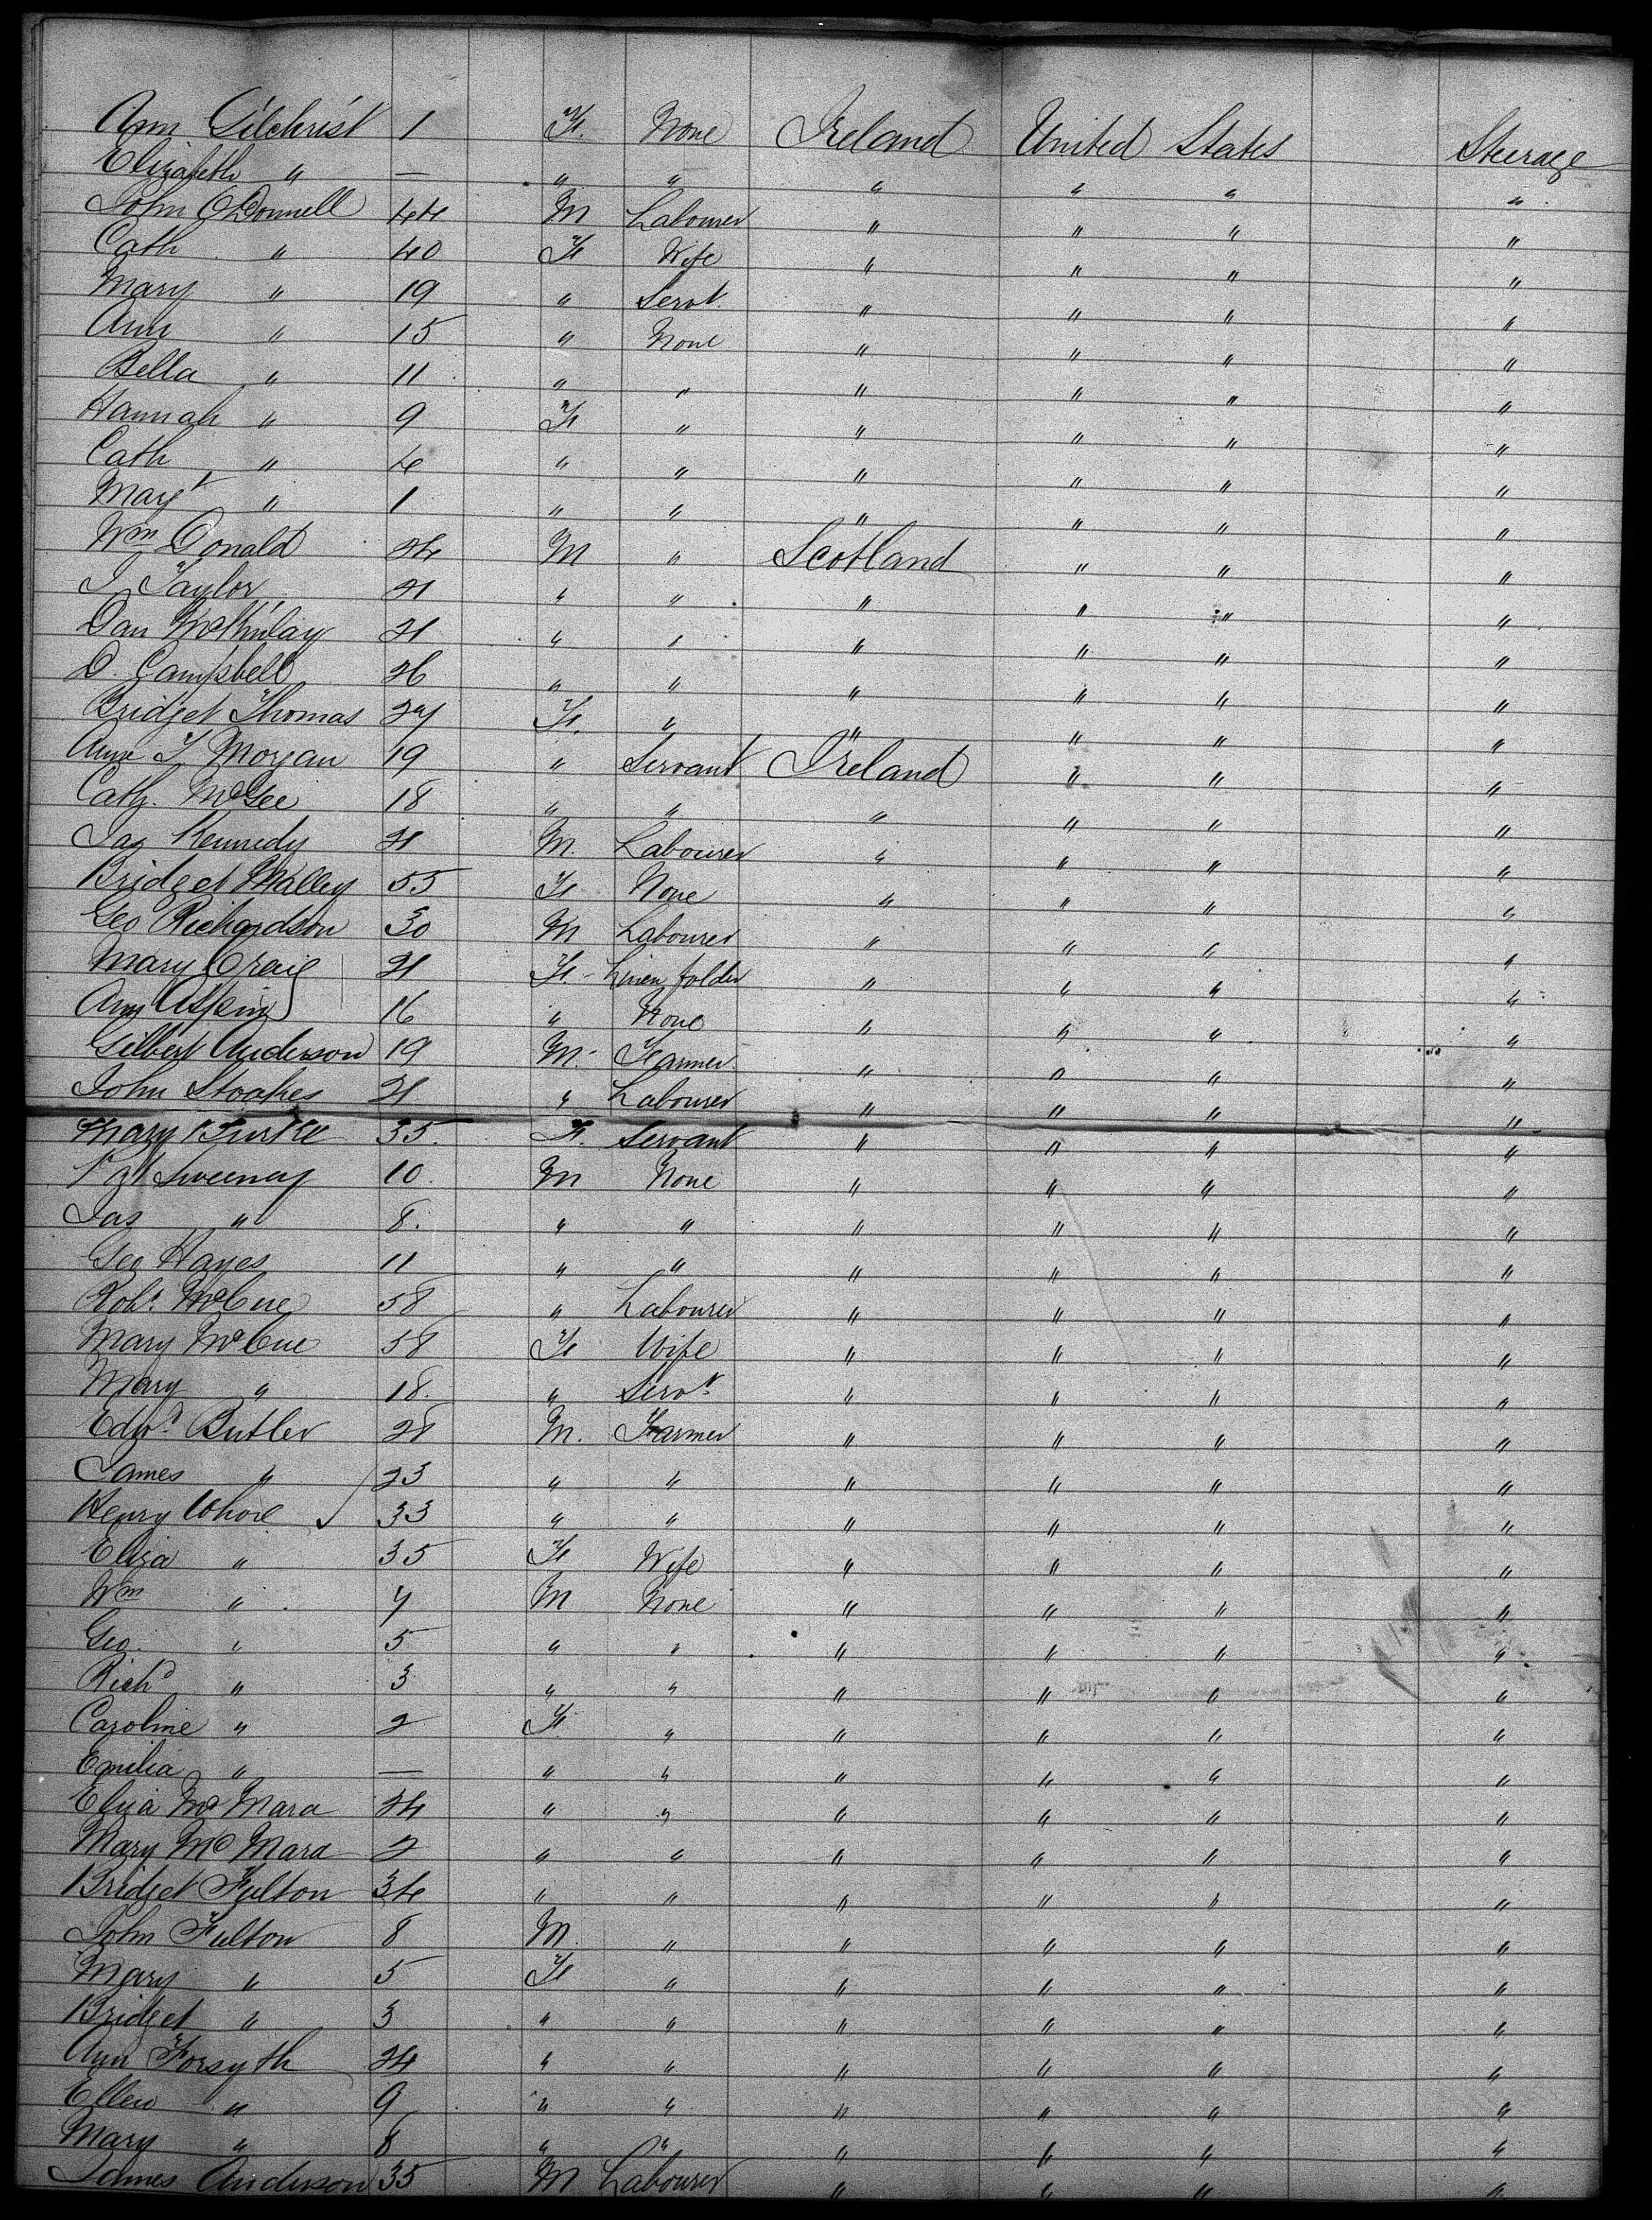 Ann Gilchrist 1 F. None Ireland United States Steerage
Elizabeth " — " " " " " "
John O'Donnell 44 M Labourer " " " "
Cath " 40 F Wife " " " "
Mary " 19 " Servt. " " " "
Ann " 15 " None " " " "
Bella " 11 " " " " " "
Hannah " 9 F " " " " "
Cath " 4 " " " " " "
Margt " 1 " " " " " "
Wm Donald 24 M " Scotland " " "
J Taylor 21 " " " " " "
Dan McKinlay 21 " " " " " "
D. Campbell 26 " " " " " "
Bridget Thomas 27 F. " " " " "
Anne J. Morgan 19 " Servant Ireland " " "
Cath. McGee 18 " " " " " "
Jas Kennedy 21 M. Labourer " " " "
Bridget Malley 55 F None " " " "
Geo Richardson 30 M Labourer " " " "
Mary Craig 21 F. Linen folder " " " "
Ann 16 " None " " " "
Gilbert Anderson 19 M. Farmer " " " "
John Stoakes 21 " Labourer " " " "
Mary Burke 35. F. Servant " " " "
Pat Sweeney 10. M None " " " "
Jas " 8. " " " " " "
Geo Hayes 11 " " " " " "
Robt. McCue 58 " Labourer " " " "
Mary McCue 58 F Wife " " " "
Mary " 18. " Servt. " " " "
Edwd. Butler 28 M. Farmer " " " "
James " 23 " " " " " "
Henry 33 " " " " " "
Eliza " 35 F Wife " " " "
Wm " 7 M None " " " "
Geo. " 5 " " " " " "
Richd " 3 " " " " " "
Caroline " 2 F " " " " "
Emilia " — " " " " " "
Eliza McMara 24 " " " " " "
Mary McMara 2 " " " " " "
Bridget Fulton 34 " " " " " "
John Fulton 8 M. " " " " "
Mary " 5 F " " " " "
Bridget " 3 " " " " " "
Ann Forsyth 24 " " " " " "
Ellen " 9 " " " " " "
Mary " 8 " " " " " "
James Anderson 35 M Labourer " " " "